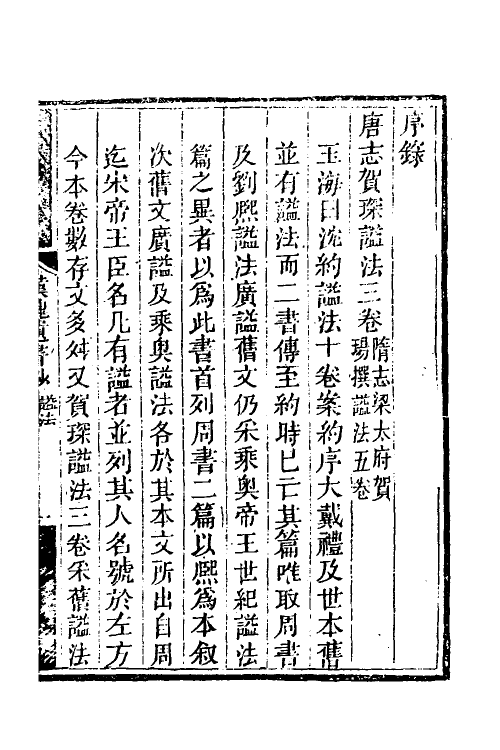 序錄
唐志賀琛謚法三卷隋志梁太府賀
瑒撰謚法五卷
玉海曰沈約謚法十卷案約序大戴禮及世本舊
並有謚法而二書傳至約時已亡其篇唯取周書
及劉熙謚法廣謚舊文仍采乘奧帝王世紀謚法
篇之異者以爲此書首列周書二篇以熙爲本叙
次舊文廣謚及乘奥謚法各於其本文所出自周
迄宋帝王臣名凡有謚者並列其人名號於左方
今本卷數存文多舛又賀琛謚法三卷采舊謚法
漢魏遺書鈔 謚法 一